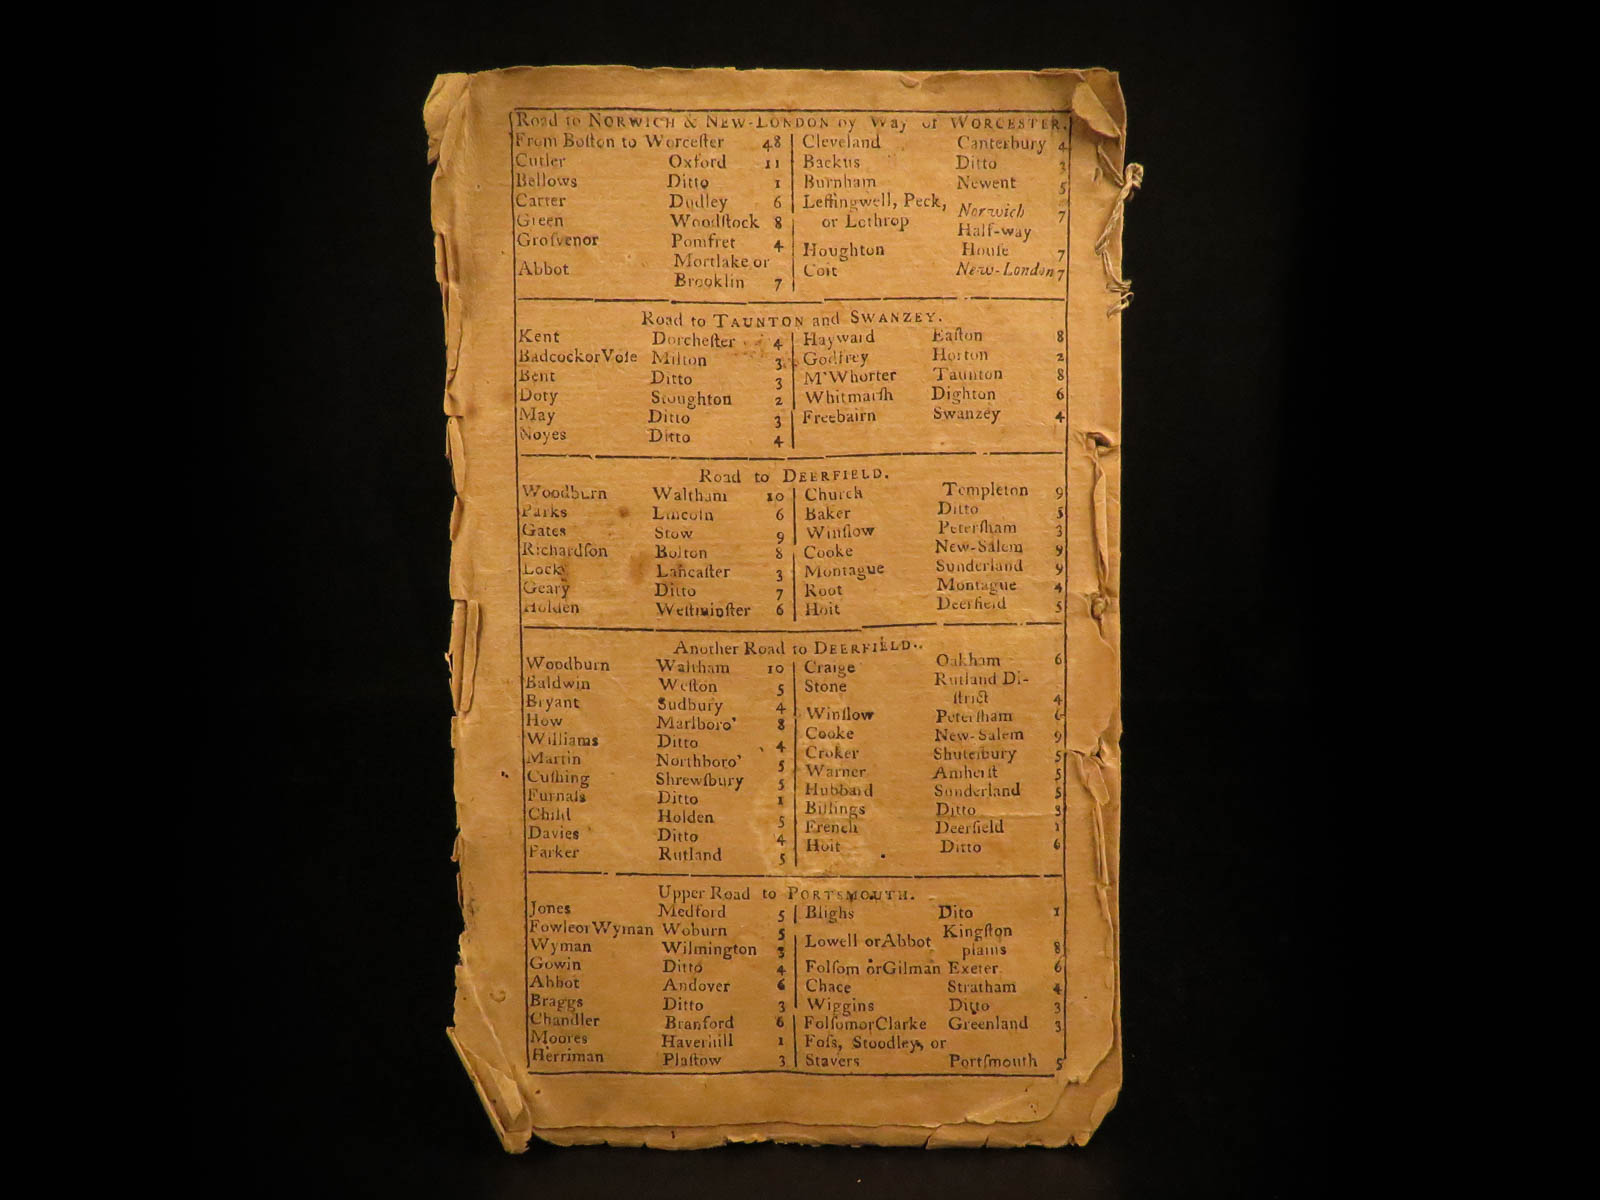 Road to NORWICH & NEW-LONDON by Way of WORCESTER.
From Boſton to Worceſter 48
Cutler Oxford 11
Bellows Ditto 1
Carter Dudley 6
Green Woodſtock 8
Groſvenor Pomfret 4
Abbot Mortlake or
Brooklin 7
Cleveland Canterbury 4
Backus Ditto 3
Burnham Newent 5
Leffingwell, Peck,
or Lothrop Norwich 7
Half-way
Houghton Houſe 7
Coit New-London 7
Road to TAUNTON and SWANZEY.
Kent Dorcheſter 4
Badcock or Voſe Milton 3
Bent Ditto 3
Doty Stoughton 2
May Ditto 3
Noyes Ditto 4
Hayward Eaſton 8
Godfrey Horton 2
M'Whorter Taunton 8
Whitmarſh Dighton 6
Freebairn Swanzey 4
Road to DEERFIELD.
Woodburn Waltham 10
Parks Lincoln 6
Gates Stow 9
Richardſon Bolton 8
Lock Lancaſter 3
Geary Ditto 7
Holden Weſtminſter 6
Church Templeton 9
Baker Ditto 5
Winſlow Peterſham 3
Cooke New-Salem 9
Montague Sunderland 9
Root Montague 4
Hoit Deerfield 5
Another Road to DEERFIELD.
Woodburn Waltham 10
Baldwin Weſton 5
Bryant Sudbury 4
How Marlboro' 8
Williams Ditto 4
Martin Northboro' 5
Cuſhing Shrewſbury 5
Furnals Ditto 1
Child Holden 5
Davies Ditto 4
Parker Rutland 5
Craige Oakham 6
Stone Rutland Di-
ſtrict 4
Winſlow Peterſham 6
Cooke New-Salem 9
Croker Shuteſbury 5
Warner Amherſt 5
Hubbard Sunderland 5
Billings Ditto 3
French Deerfield 1
Hoit Ditto 6
Upper Road to PORTSMOUTH.
Jones Medford 5
Fowle or Wyman Woburn 5
Wyman Wilmington 3
Gowin Ditto 4
Abbot Andover 6
Braggs Ditto 3
Chandler Branford 6
Moores Haverhill 1
Herriman Plaſtow 3
Blighs Dito 1
Kingſton
Lowell or Abbot plains 8
Folſom or Gilman Exeter 6
Chace Stratham 4
Wiggins Ditto 3
Folſom or Clarke Greenland 3
Foſs, Stoodley, or
Stavers Portſmouth 5